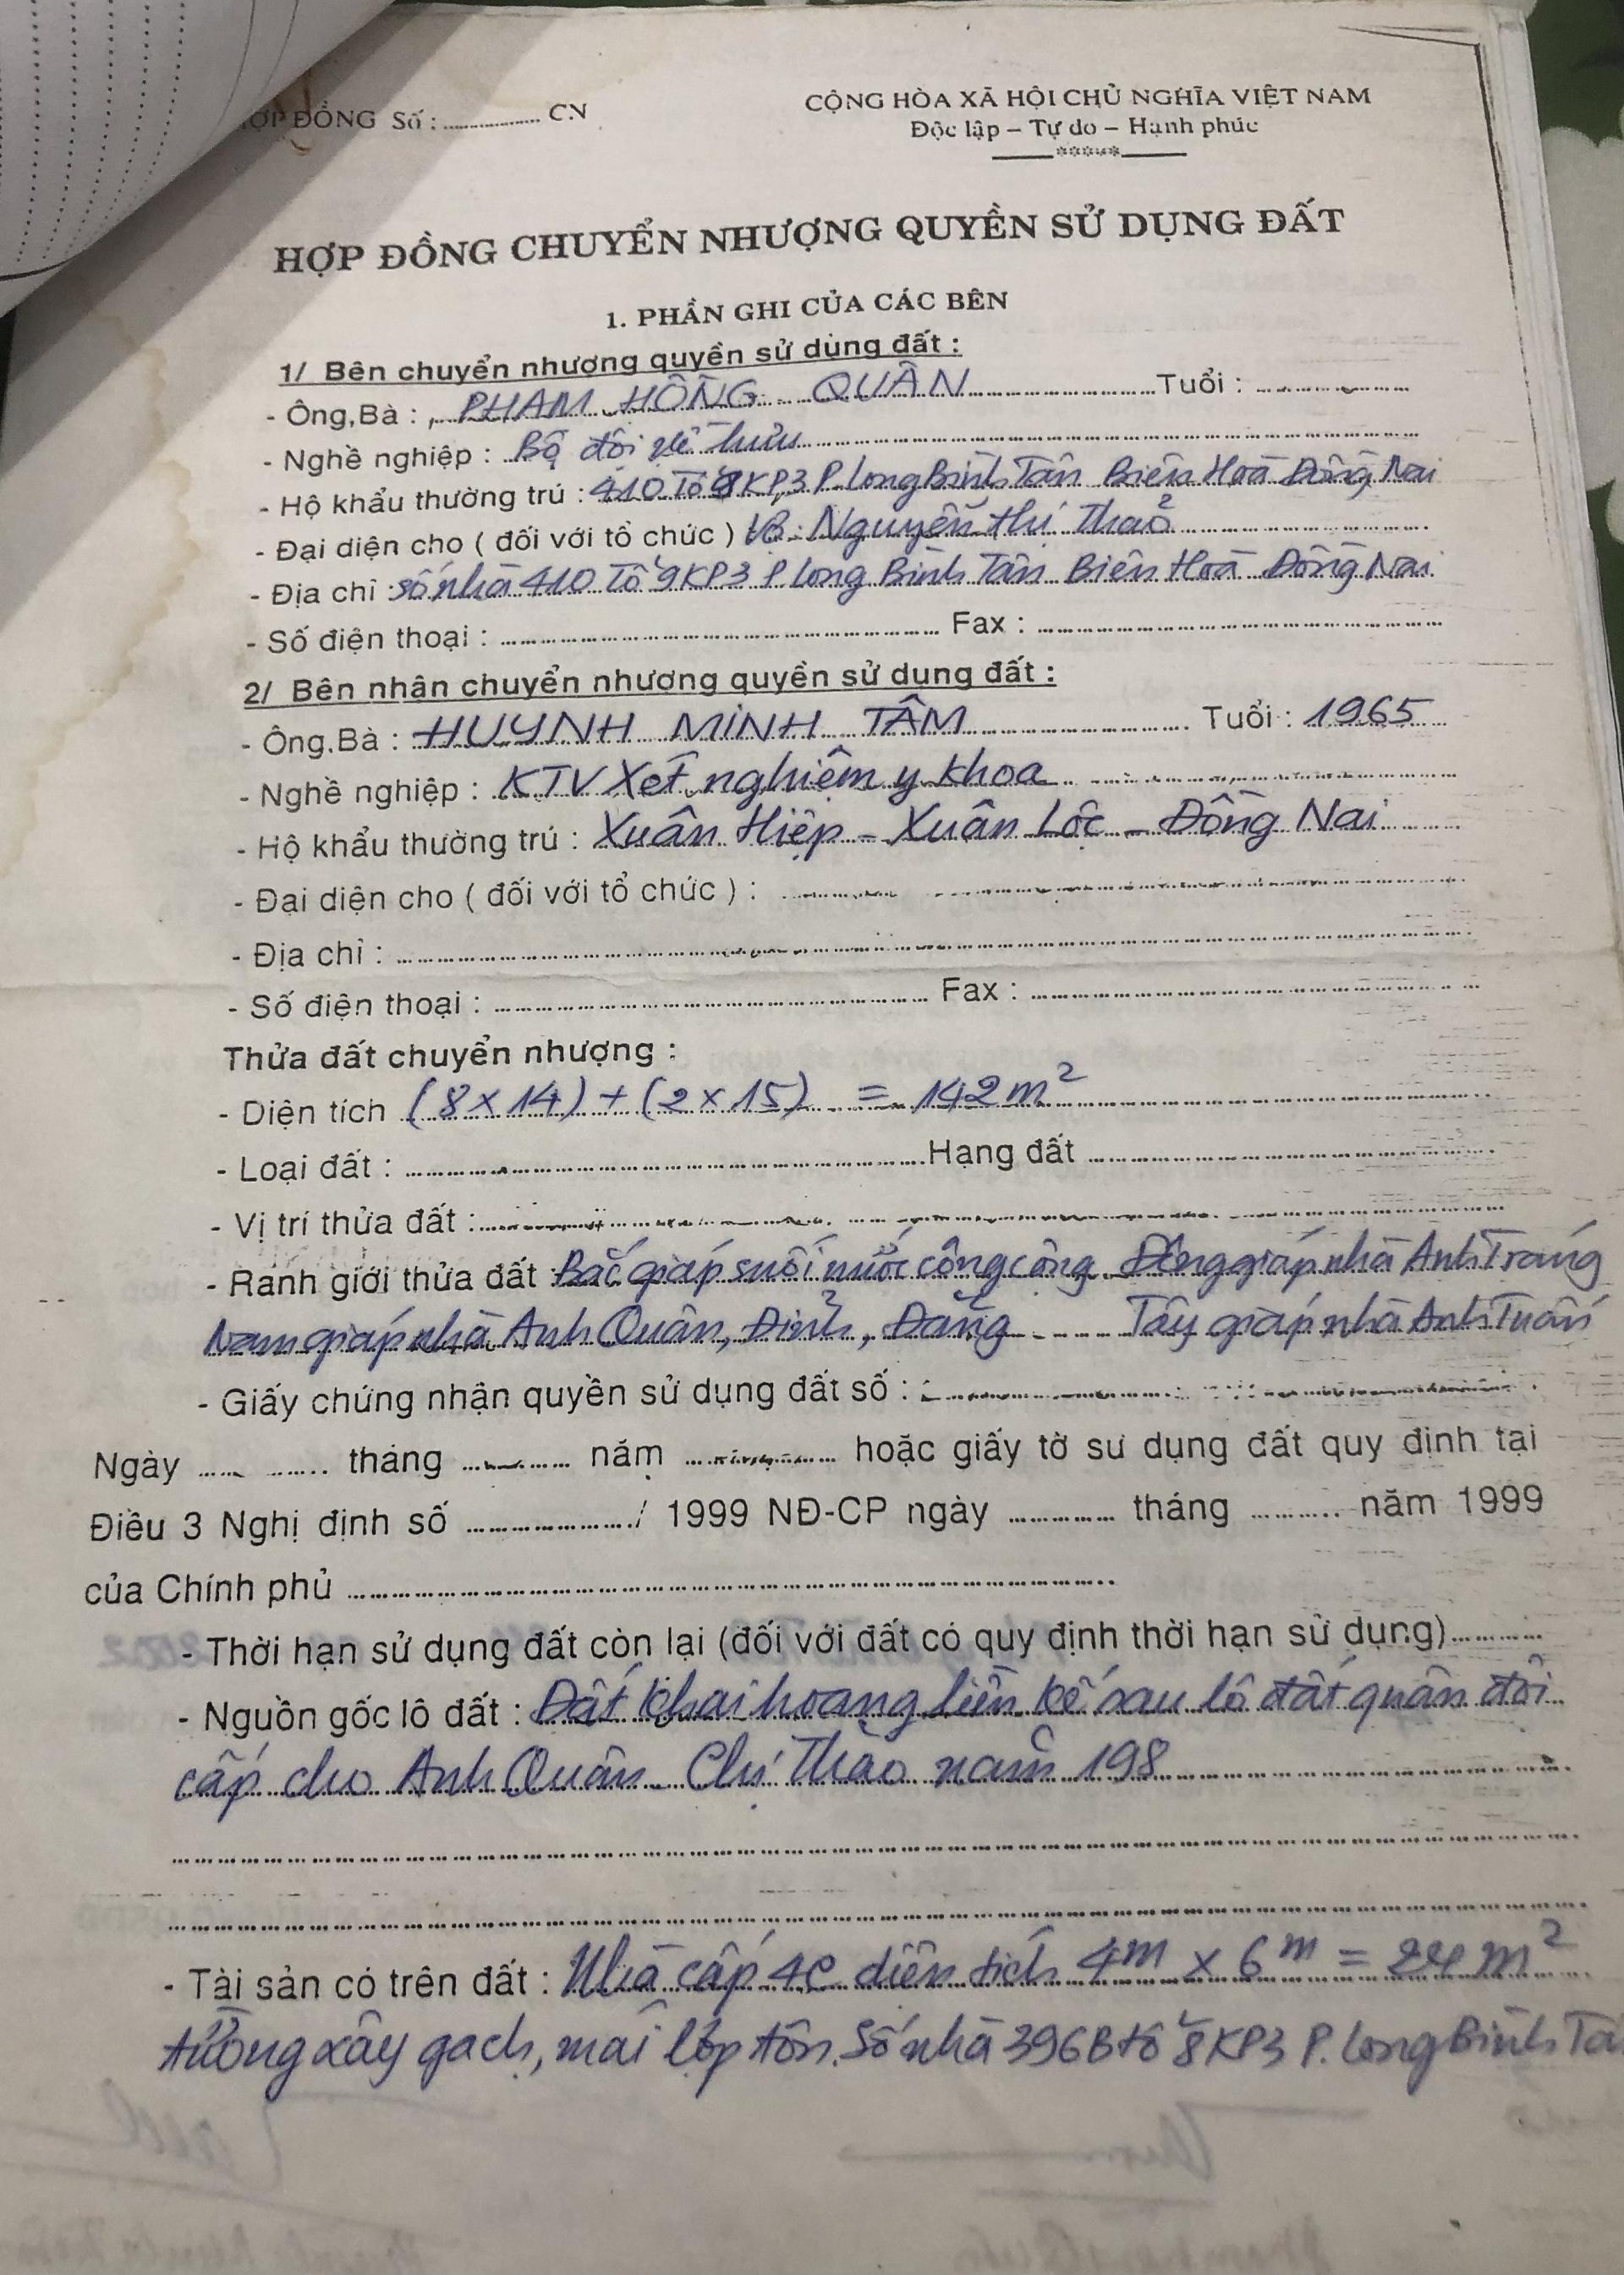 HỢP ĐỒNG Số : ................ CN
CỘNG HÒA XÃ HỘI CHỦ NGHĨA VIỆT NAM
Độc lập – Tự do – Hạnh phúc
HỢP ĐỒNG CHUYỂN NHƯỢNG QUYỀN SỬ DỤNG ĐẤT
1. PHẦN GHI CỦA CÁC BÊN
1/ Bên chuyển nhượng quyền sử dụng đất :
- Ông,Bà : PHẠM HỒNG QUÂN Tuổi :
- Nghề nghiệp : Bộ đội về hưu
- Hộ khẩu thường trú : 410 Tổ 9 KP3 P. Long Bình Tân Biên Hoà Đồng Nai
- Đại diện cho ( đối với tổ chức ) Vợ: Nguyễn thị Thảo
- Địa chỉ : số nhà 410 Tổ 9 KP3 P Long Bình Tân Biên Hoà Đồng Nai
- Số điện thoại : Fax :
2/ Bên nhận chuyển nhượng quyền sử dụng đất :
- Ông,Bà : HUỲNH MINH TÂM Tuổi : 1965
- Nghề nghiệp : KTV Xét nghiệm y khoa
- Hộ khẩu thường trú : Xuân Hiệp - Xuân Lộc - Đồng Nai
- Đại diện cho ( đối với tổ chức ) :
- Địa chỉ :
- Số điện thoại : Fax :
Thửa đất chuyển nhượng :
- Diện tích (8 x 14) + (2 x 15) = 142 m²
- Loại đất : Hạng đất
- Vị trí thửa đất :
- Ranh giới thửa đất : Bắc giáp suối nước công cộng Đông giáp nhà Anh Tráng
Nam giáp nhà Anh Quân, Đỉnh, Đăng Tây giáp nhà Anh Tuấn
- Giấy chứng nhận quyền sử dụng đất số :
Ngày tháng năm hoặc giấy tờ sư dụng đất quy định tại
Điều 3 Nghị định số / 1999 NĐ-CP ngày tháng năm 1999
của Chính phủ
- Thời hạn sử dụng đất còn lại (đối với đất có quy định thời hạn sử dụng)
- Nguồn gốc lô đất : Đất khai hoang liền kề sau lô đất quân đội
cấp cho Anh Quân Chị Thảo năm 198
- Tài sản có trên đất : Nhà cấp 4C diện tích 4m x 6m = 24 m²
tường xây gạch, mái lợp tôn. Số nhà 396B tổ 8 KP3 P. Long Bình Tâ